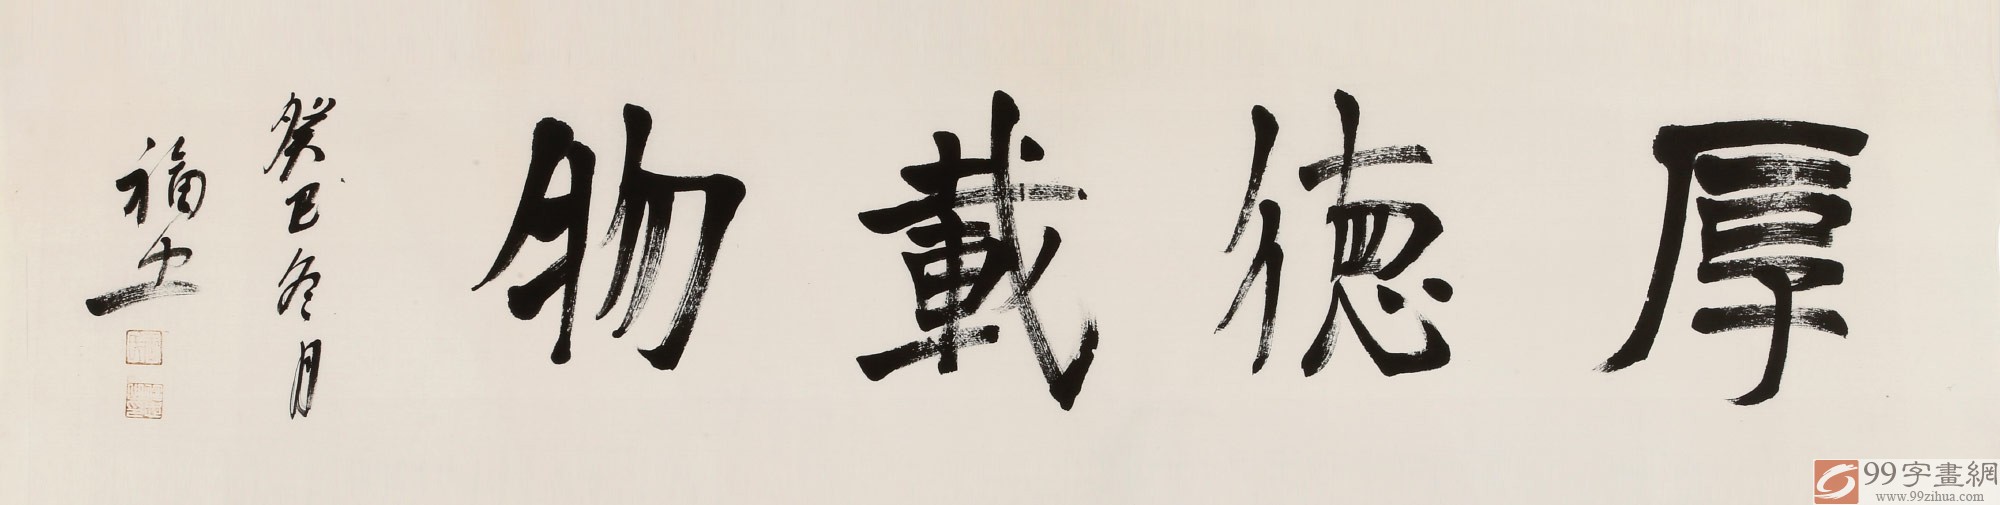 厚德載物
癸巳冬月
福宝
99字畫網
www.99zihua.com